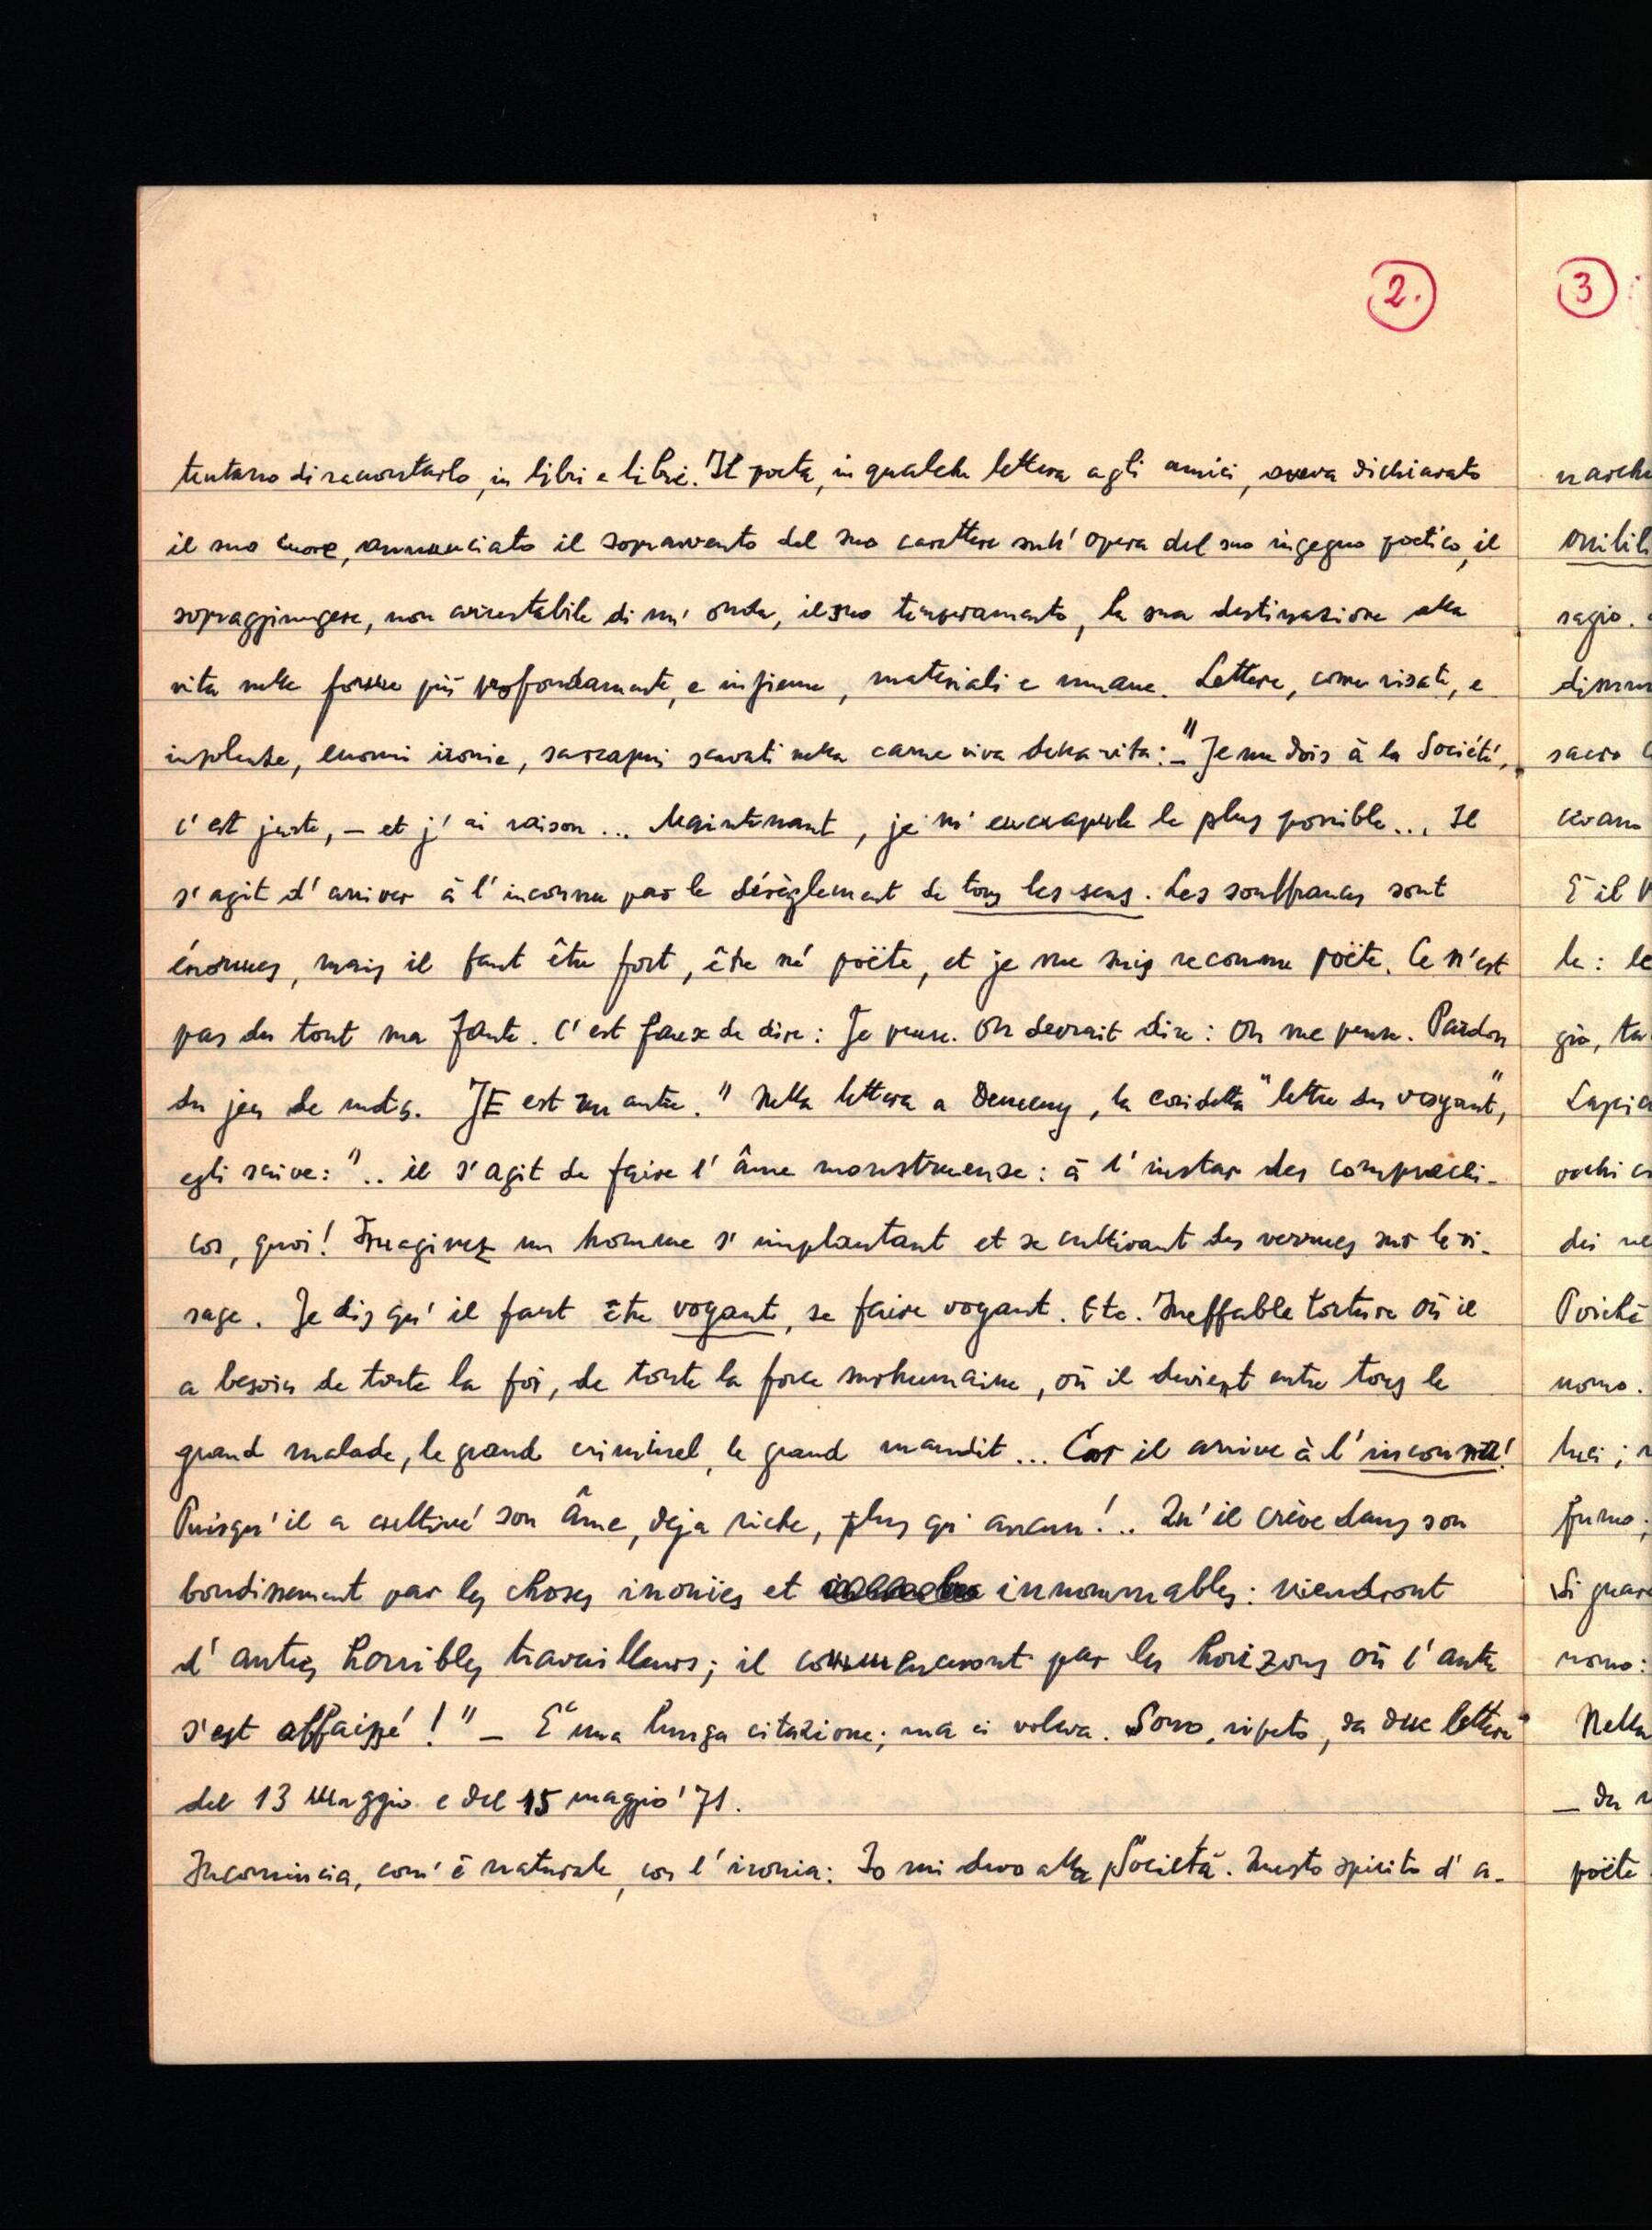 2.
tentano di raccontarlo, in libri e libri. Il poeta, in qualche lettera agli amici, aveva dichiarato
il suo cuore, annunciato il sopravvento del suo carattere sull'opera del suo ingegno poetico, il
sopraggiungere, non arrestabile di un'onda, il suo temperamento, la sua destinazione alla
vita nelle forme più profondamente, e insieme, materiali e umane. Lettere, come risate, e
insolenze, enormi ironie, sarcasmi scavati nella carne viva della vita: _ "Je me dois à la Société,
c'est juste, — et j'ai raison ... Maintenant, je m'encrapule le plus possible... Il
s'agit d'arriver à l'inconnu par le dérèglement de tous les sens. Les souffrances sont
énormes, mais il faut être fort, être né poëte, et je me suis reconnu poëte. Ce n'est
pas du tout ma faute. C'est faux de dire: Je pense. On devrait dire: On me pense. Pardon
du jeu de mots. JE est un autre." Nella lettera a Demeny, la cosidetta "lettre du voyant",
egli scrive: ".. il s'agit de faire l'âme monstrueuse: à l'instar des comprachi-
cos, quoi! Imaginez un homme s'implantant et se cultivant des verrues sur le vi-
sage. Je dis qu'il faut être voyant, se faire voyant. Etc. Ineffable torture où il
a besoin de toute la foi, de toute la force surhumaine, où il devient entre tous le
grand malade, le grand criminel, le grand maudit ... Car il arrive à l'inconnu!
Puisqu'il a cultivé son âme, deja riche, plus qu'aucun! .. Qu'il crève dans son
bondissement par les choses inouïes et innommables: viendront
d'autres horribles travailleurs; il commenceront par les horizons où l'autre
s'est affaissé!" — E' una lunga citazione; ma ci voleva. Sono, ripeto, da due lettere
del 13 maggio e del 15 maggio '71.
Incomincia, com'è naturale, con l'ironia: Io mi devo alla Società. Questo spirito d'a-
3